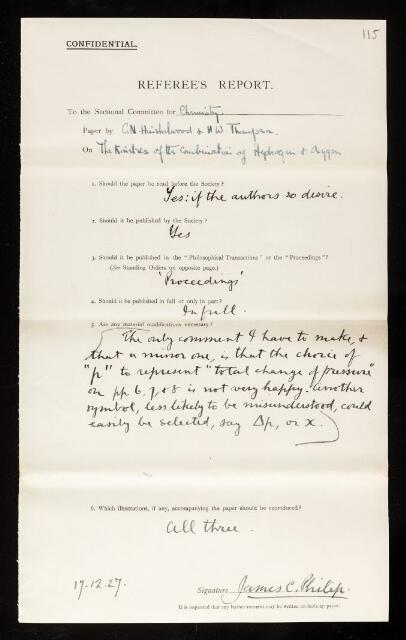 115
CONFIDENTIAL.
REFEREE'S REPORT.
To the Sectional Committee for Chemistry
Paper by C.N. Hinshelwood & H.W. Thompson.
On The Kinetics of the Combination of Hydrogen & Oxygen
1. Should the paper be read before the Society?
Yes: if the authors so desire.
2. Should it be published by the Society?
Yes
3. Should it be published in the "Philosophical Transactions" or the "Proceedings"?
(See Standing Orders on opposite page.)
'Proceedings'
4. Should it be published in full or only in part?
In full.
5. Are any material modifications necessary?
The only comment I have to make, &
that a minor one, is that the choice of
"p" to represent "total change of pressure"
on pp. 6, 7, & 8 is not very happy. Another
symbol, less likely to be misunderstood, could
easily be selected, say Δp, or x.
6. Which illustrations, if any, accompanying the paper should be reproduced?
All three.
17.12.27.
Signature James C. Philip.
It is requested that any further remarks may be written on foolscap paper.